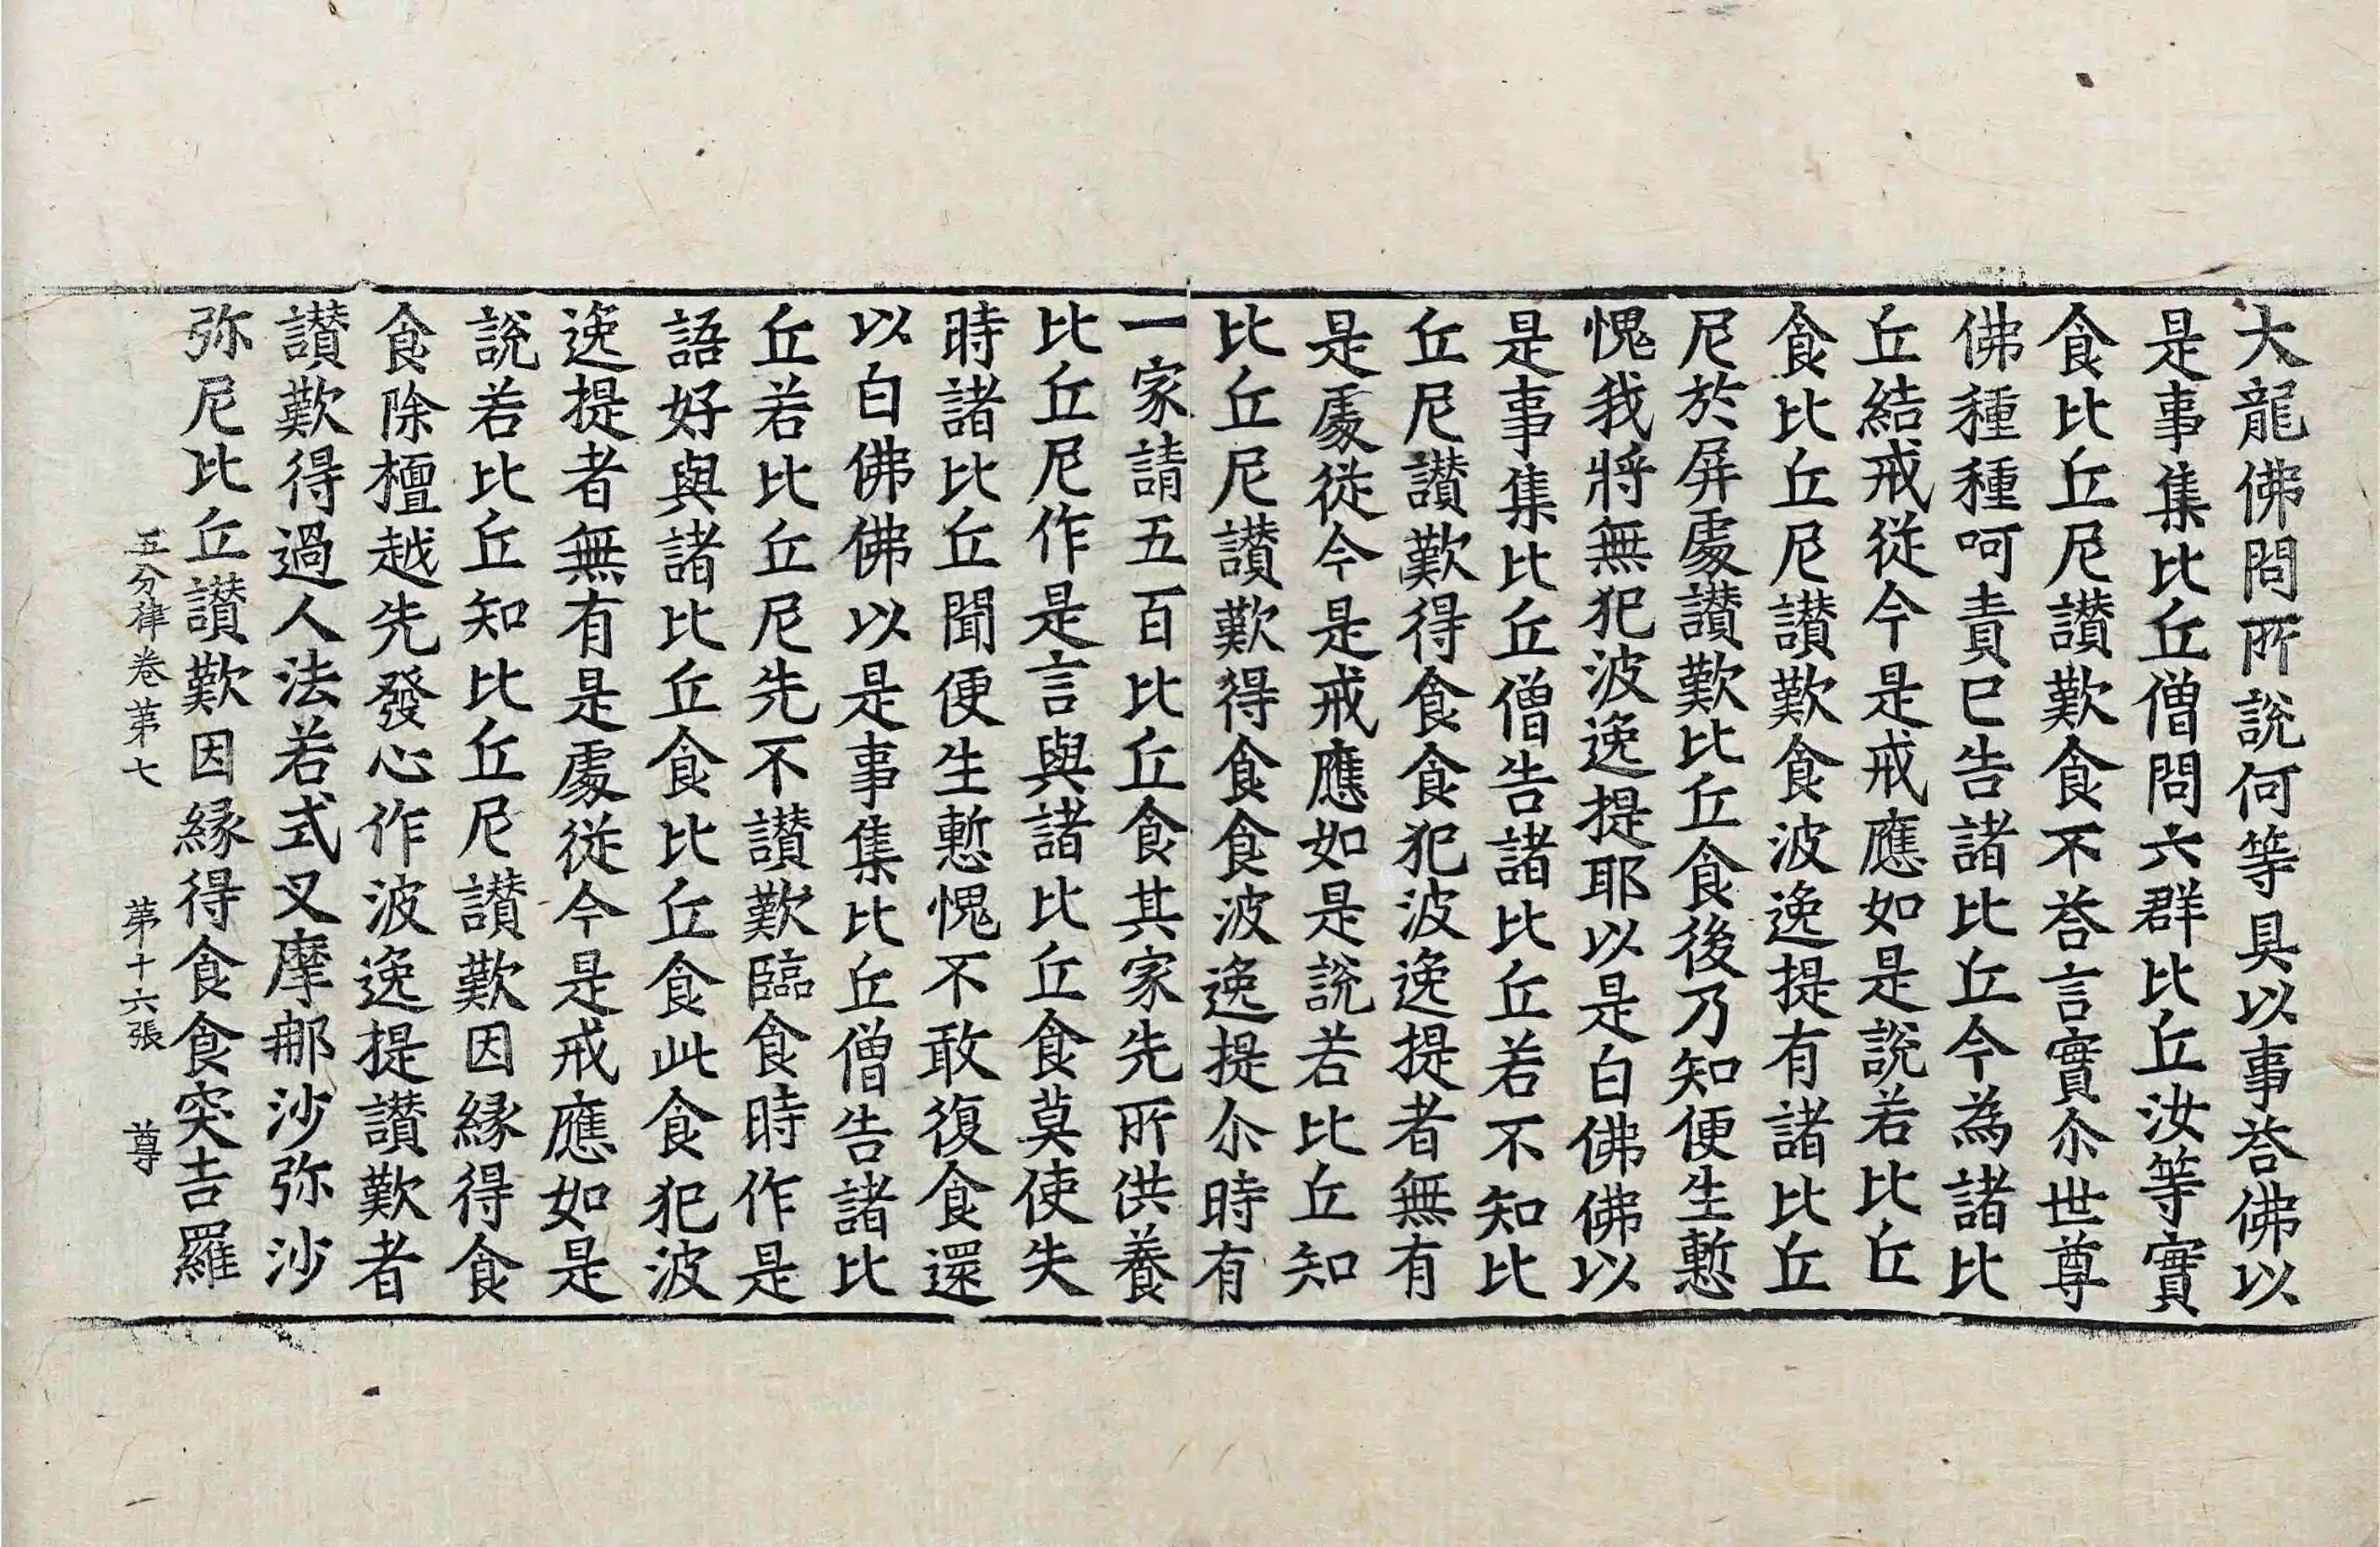 大龍佛問所說何等具以事荅佛以
是事集比丘僧問六群比丘汝等實
食比丘尼讃歎食不荅言實尒世尊
佛種種呵責已告諸比丘今為諸比
丘結戒從今是戒應如是說若比丘
食比丘尼讃歎食波逸提有諸比丘
尼於屏處讃歎比丘食後乃知便生慙
愧我將無犯波逸提耶以是白佛佛以
是事集比丘僧告諸比丘若不知比
丘尼讃歎得食食犯波逸提者無有
是處從今是戒應如是說若比丘知
比丘尼讃歎得食食波逸提尒時有
一家請五百比丘食其家先所供養
比丘尼作是言與諸比丘食莫使失
時諸比丘聞便生慙愧不敢復食還
以白佛佛以是事集比丘僧告諸比
丘若比丘尼先不讃歎臨食時作是
語好與諸比丘食比丘食此食犯波
逸提者無有是處從今是戒應如是
說若比丘知比丘尼讃歎因緣得食
食除檀越先發心作波逸提讃歎者
讃歎得過人法若式叉摩那沙弥沙
弥尼比丘讃歎因緣得食食突吉羅
五分律卷第七 第十六張 尊